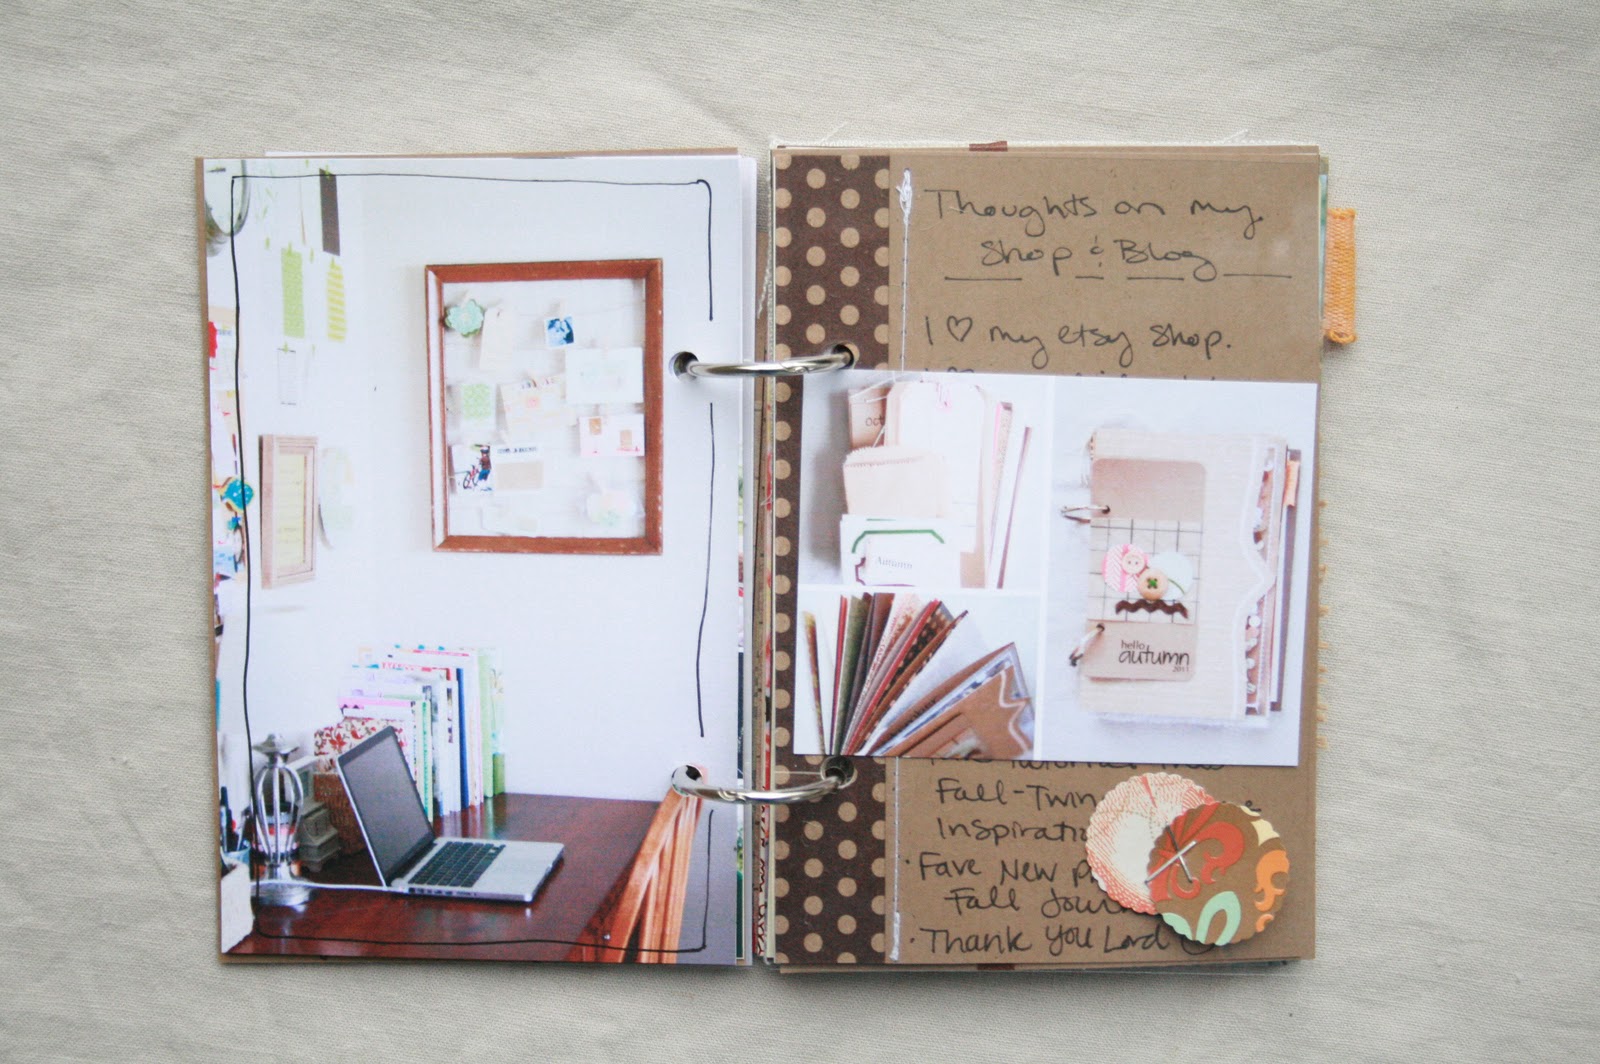 Thoughts on my
Shop & Blog
I ♡ my etsy shop.
Oct
Autumn
hello
autumn
2011
Fall-Twin
Inspiratio
· Fave New p
Fall Journ
· Thank You Lord